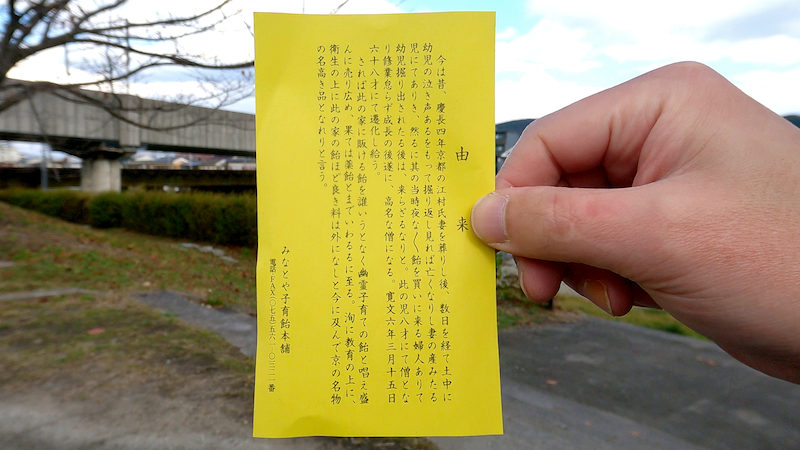 由来
今は昔、慶長四年京都の江村氏妻を葬りし後、数日を経て土中に
幼児の泣き声あるをもって掘り返し見れば亡くなりし妻の産みたる
児にてありき、然るに其の当時夜な〱飴を買いに来る婦人ありて
幼児掘り出されたる後は、来らざるなりと。此の児八才にて僧とな
り修業怠らず成長の後遂に、高名な僧になる。寛文六年三月十五日
六十八才にて遷化し給う。
されば此の家に販ける飴を誰いうとなく幽霊子育ての飴と唱え盛
んに売り広め、果ては薬飴とまでいわるるに至る。洵に教育の上に、
衛生の上に此の家の飴ほど良き料は外になしと今に及んで京の名物
の名高き品となれりと言う。
みなとや子育飴本舗
電話 FAX〇七五‐五六一‐〇三二一番